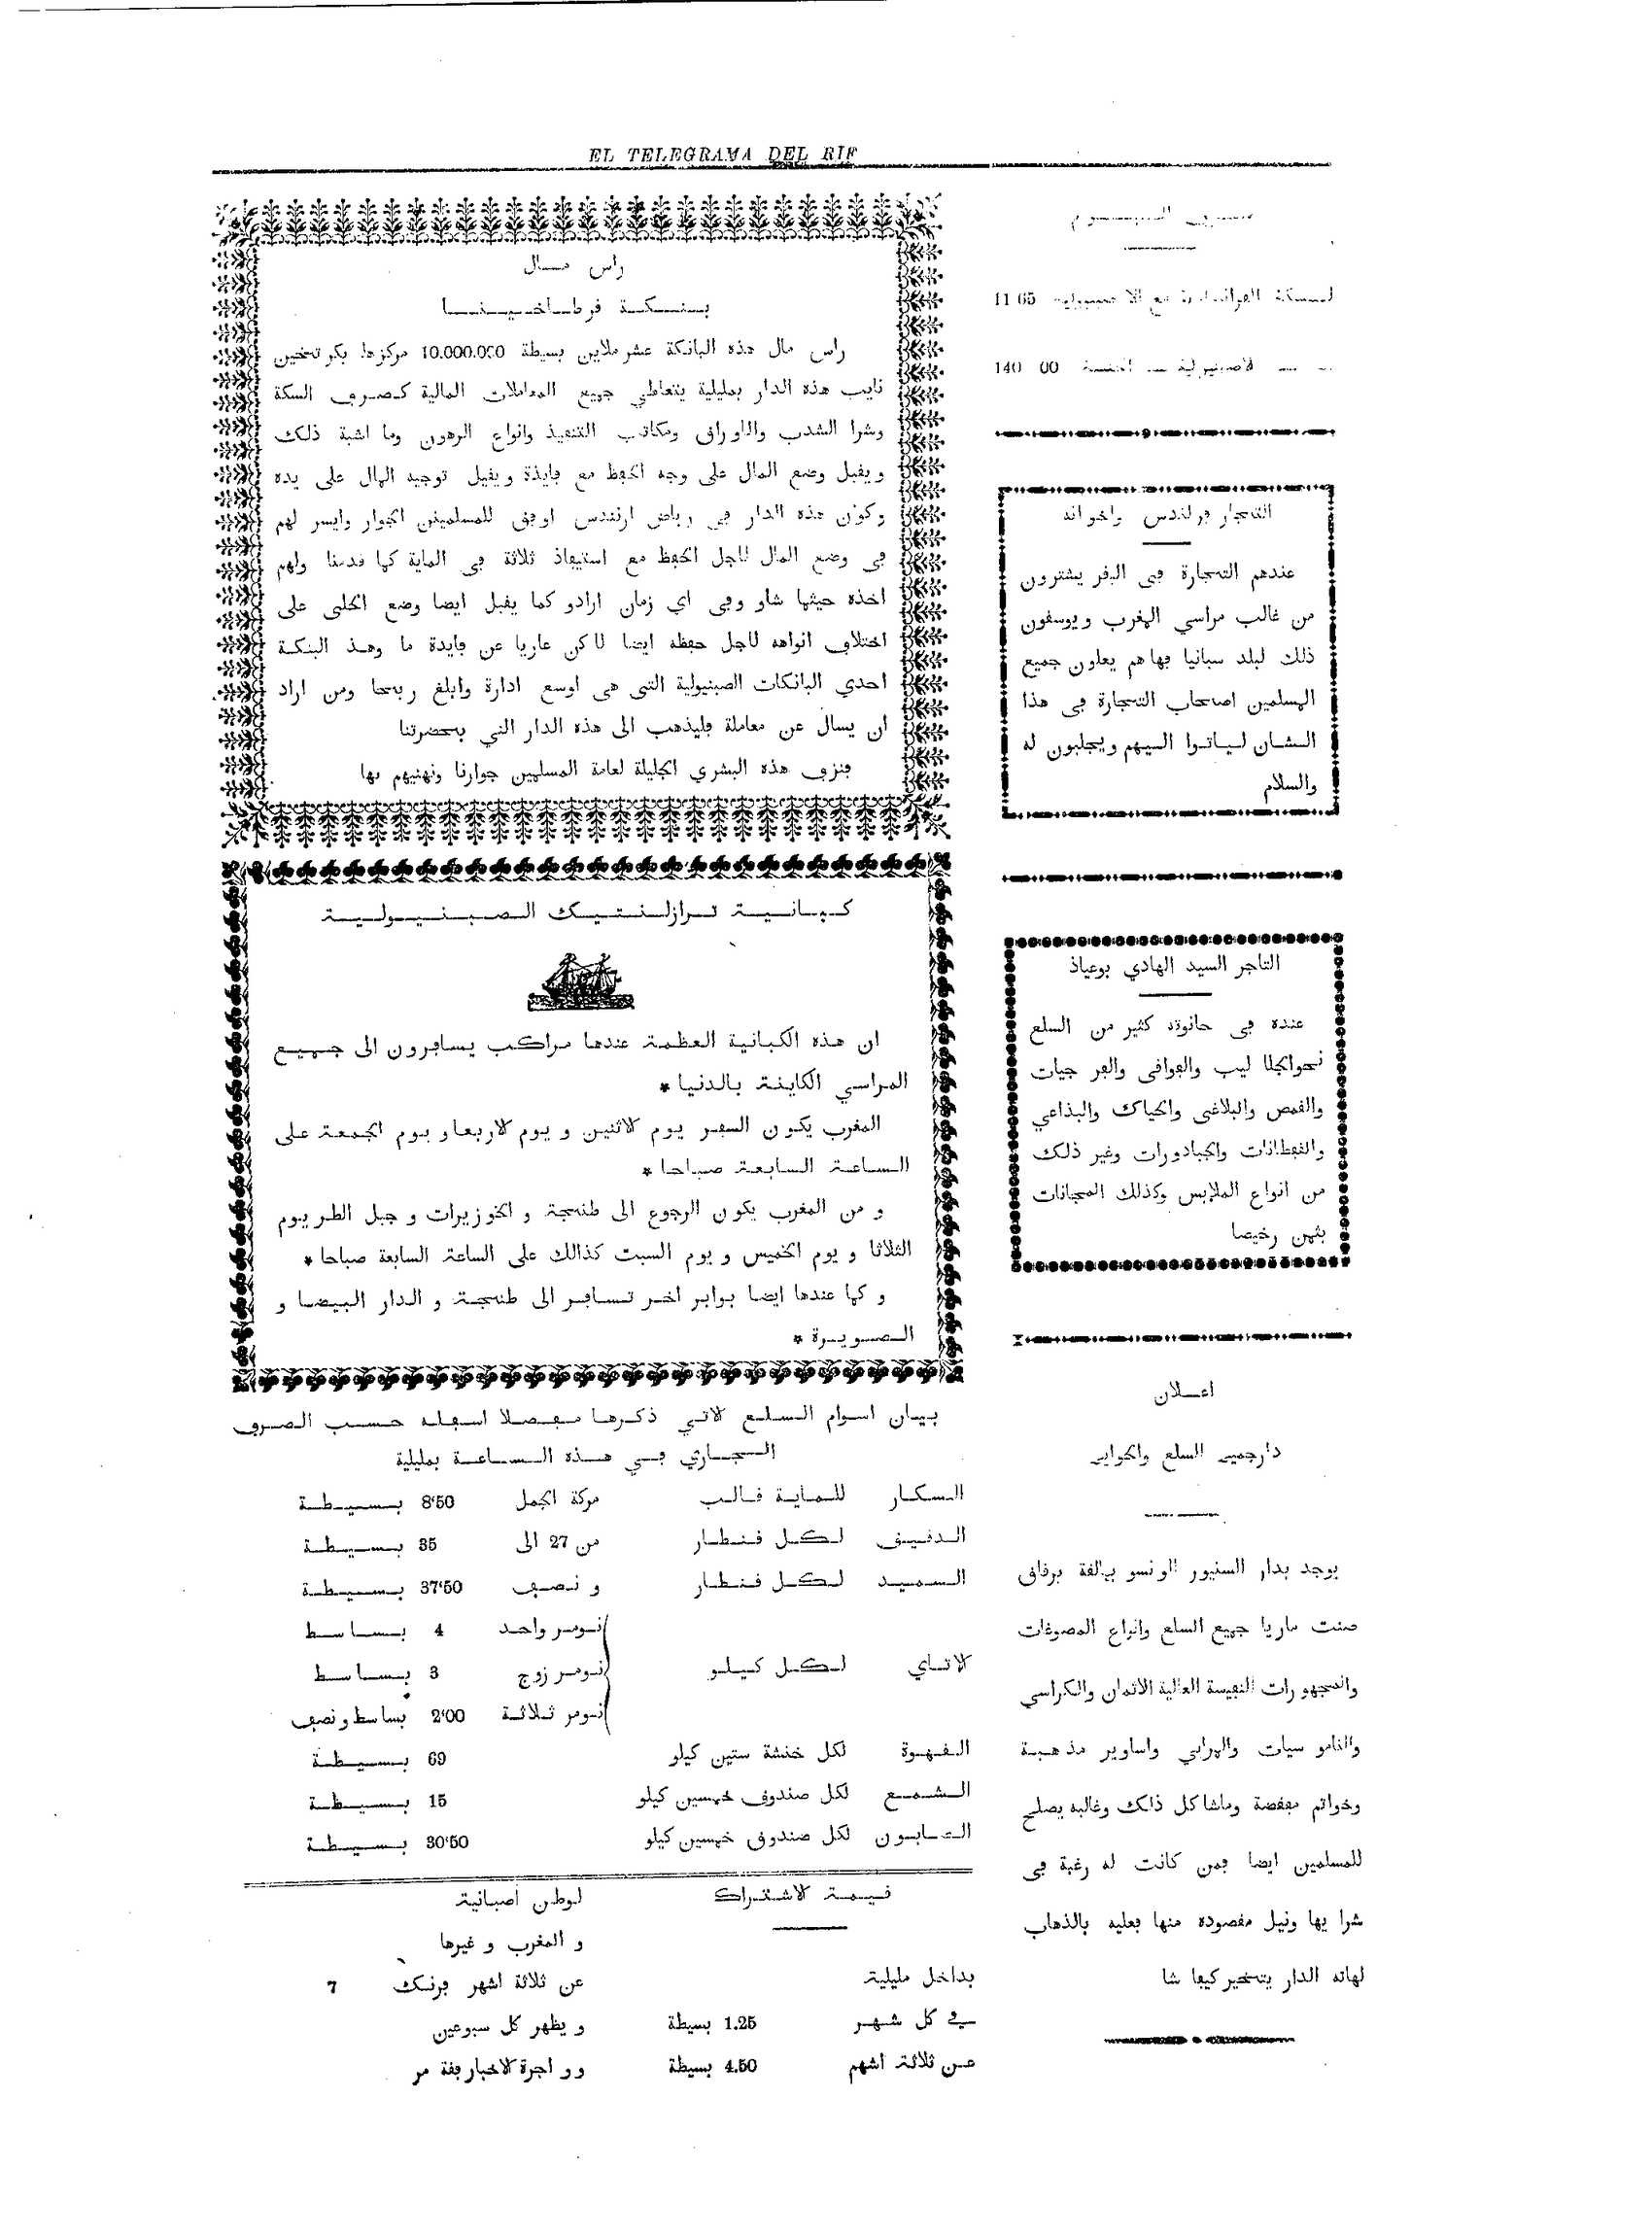 EL TELEGRAMA DEL RIF
11 65
140 00
التجار فرلندس واخوانه
عندهم التجارة فى البقر يشترون
من غالب مراسي المغرب ويوسقون
ذلك لبلد سبانيا فها هم يعلون جميع
المسلمين اصحاب التجارة فى هذا
الشان لياتوا اليهم ويجلبون له
والسلام
التاجر السيد الهادي بوعياذ
عنده فى حانوته كثير من السلع
نحوالجلا ليب والقوافى والفر جيات
والقمص والبلاغى والحياك والبذاعي
والقفطانات والجبادورات وغير ذلك
من انواع الملابس وكذلك المجانات
بثمن رخيصا
اعلان
دارجميع السلع والحوايج
يوجد بدار السنيور الونسو ببالقة برقاق
صنت ماريا جميع السلع وانواع المصوغات
والمجهورات النفيسة العالية الاثمان والكراسي
والنامو سيات والمرايي واساوير مذهبة
وخواتم مفضضة وماشاكل ذلك وغالبه يصلح
للمسلمين ايضا فمن كانت له رغبة فى
شرا يها ونيل مقصوده منها فعليه بالذهاب
لهاته الدار يتخيركيفا شا
راس مال
بنكة قرطاخينا
راس مال هذه البانكة عشر ملاين بسيطة 10.000.000 مركزها بكرتخين
نايب هذه الدار بمليلية يتعاطي جميع المعاملات المالية كصرف السكة
وشرا الشدب والاوراق ومكاتب التنفيذ وانواع الرهون وما اشبة ذلك
ويقبل وضع المال على وجه الحفظ مع فايذة ويقيل توجيه المال على يده
وكون هذه الدار فى رياض ارنندس اوفق للمسلمين الجوار وايسر لهم
فى وضع المال لاجل الحفظ مع استيفاذ ثلاثة فى الماية كما قدمنا ولهم
اخذه حيثما شاو وفى اي زمان ارادو كما يقبل ايضا وضع الحلى على
اختلاف انواهه لاجل حفظه ايضا لاكن عاريا عن فايدة ما وهذ البنكة
احدي البانكات الصبنيولية التى هى اوسع ادارة وابلغ ربحا ومن اراد
ان يسال عن معاملة فليذهب الى هذه الدار التي بحضرتنا
فنزف هذه البشري الجليلة لعامة المسلمين جوارنا ونهنيهم بها
كبانية ترازلنتيك الصبنيولية
ان هذه الكبانية العظمة عندها مراكب يسافرون الى جميع
المراسي الكاينة بالدنيا *
المغرب يكون السفر يوم لاثنين و يوم لاربعاو يوم الجمعة على
الساعة السابعة صباحا *
و من المغرب يكون الرجوع الى طنجة و الخوزيرات و جبل الطر يوم
الثلاثا و يوم الخميس و يوم السبت كذالك على الساعة السابعة صباحا *
و كما عندها ايضا بوابر اخر تسافر الى طنجة و الدار البيضا و
الصويرة *
بيان اسوام السلع لاتي ذكرها مفصلا اسفله حسب الصرف
الجاري في هذه الساعة بمليلية
السكار للماية قالب مركة الجمل 8'50 بسيطة
الدقيق لكل قنطار من 27 الى 35 بسيطة
السميد لكل قنطار و نصف 37'50 بسيطة
نومر واحد 4 بساسط
لاتاي لكل كيلو نومر زوج 3 بساسط
نومر ثلاثة 2'00 بساسط و نصف
القهوة لكل خنشة ستين كيلو 69 بسيطة
الشمع لكل صندوق خمسين كيلو 15 بسيطة
الصابون لكل صندوق خمسين كيلو 30'50 بسيطة
قيمة لاشتراك
بداخل مليلية
في كل شهر 1.25 بسيطة
عن ثلاثة اشهم 4.50 بسيطة
لوطن اصبانية
و المغرب و غيرها
عن ثلاثة اشهر فرنك 7
و يظهر كل سبوعين
وو اجرة لاخبار بفة مر